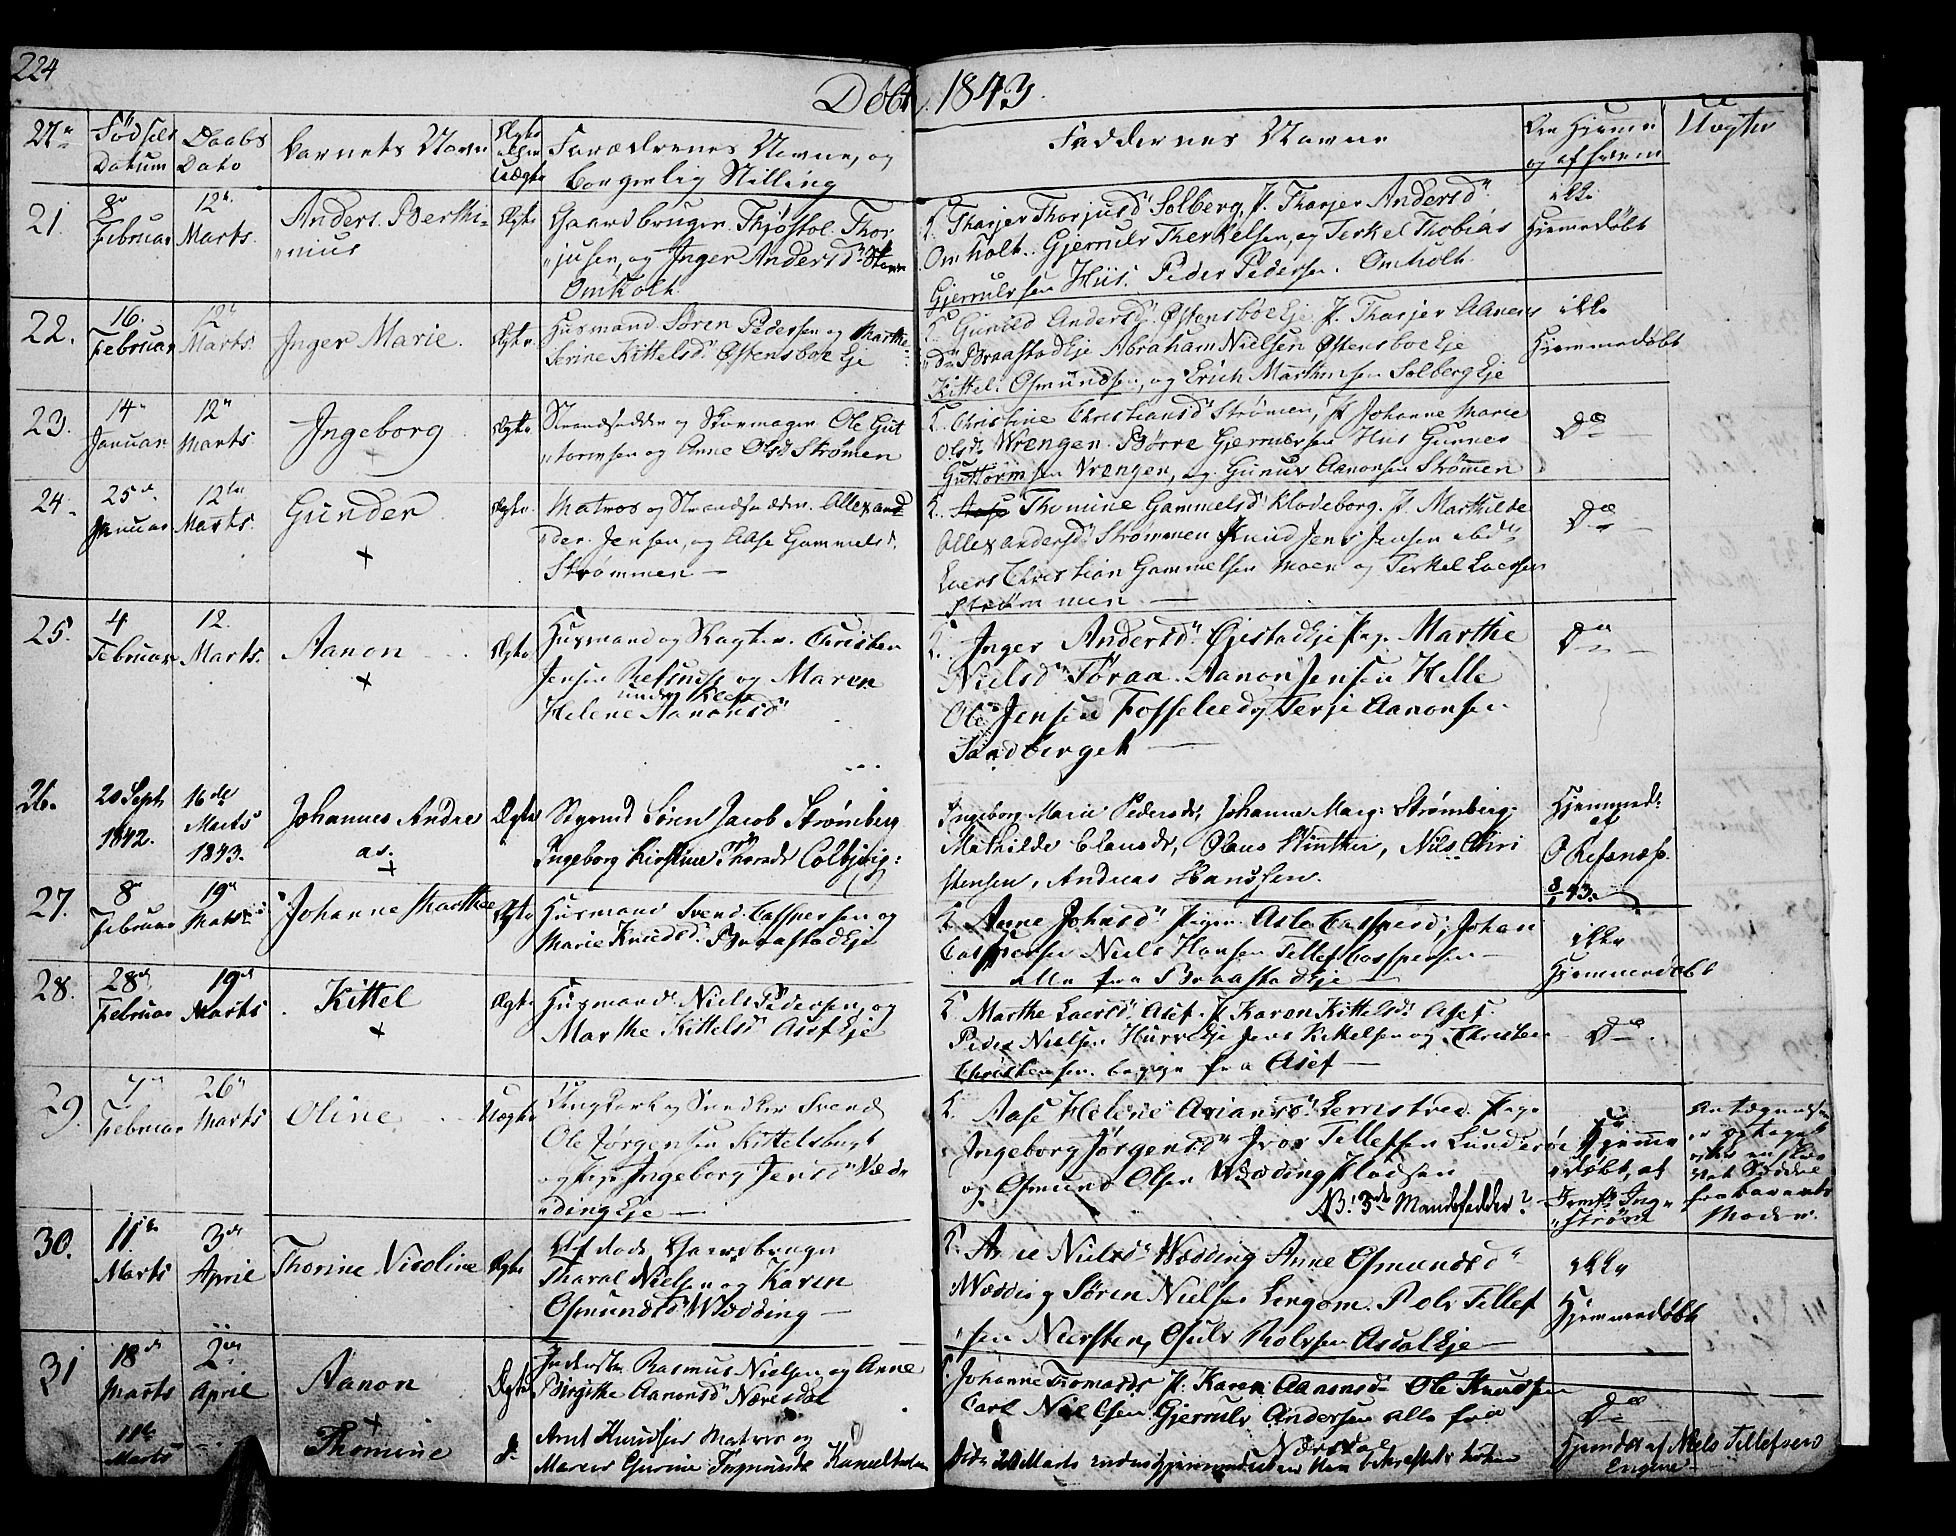 224
Døbt 1843.
Nr.
Fødsels Datum
Daabs Dato
Barnets Navn
Ægte eller Uægte
Forældrenes Navne, og
borgerlig Stilling
Faddernes Navne
Om Hjemme
og af hvem
Uægte
21.
8de Februar
12te Marts.
Anders Berthi-
nius
Ægte
Gaardbruger Thjøstol Thor-
jusen, og Inger Andersd.
Omholt
K. Tharjer Thorjusd. Solberg, P. Tharjer Andersd.
Omholt. Gjerrulv Therkelsen, og Terkel Thobias
Gjerrulvsen Hiis. Peder Pedersen. Omholt
ikke
Hjemmedøbt
22.
16. Februar
12te Marts.
Inger Marie.
Ægte.
Husmand Søren Pedersen og Marthe
Serine Kittelsd. Østensboe Eje
K. Gunild Andersd. Østensboe Eje. P. Tharjer
Braastad Eje Abraham Nielsen Østensboe Eje
Kittel Osmundsen, og Erich Mathisen Solberg Eje
ikke
Hjemmedøbt
23.
14 Januar
12te Marts.
Ingeborg
Ægte
Strandsidder og Skomager Ole Gut
tormsen og Anne Olsd Strømen
K. Christine Christiansd Strømen, P. Johanne Marie
Olsd. Vrengen. Børre Gjerrulvsen Hiis Gunner
Guttormsen Vrengen, og Gunuv Aanonsen Strømmen
Do
24.
25de Januar
12te Marts.
Gunder
+
Ægte.
Matros og Strandsidder. Allexand
der Jensen, og Aase Gammelsd.
Strømmen —
K. Thomine Gammelsd. Klodeborg. P. Mathilde
Allexandersd. Strømmen Knud Jens Jensen ibd.
Laers Christian Gammelsen Moen og Terkel Laersen
Strømmen. —
Do
25.
4 Februar
12. Marts.
Aanon
+
Ægte
Husmand og Christen
Jensen Refsnes og Maren
Helene Aanonsd.
K. Inger Andersd. Gjestad Eje Pig. Marthe
Nielsd. Tøraa. Aanon Jensen Helle
Ole Jensen Fosselie og Terje Aanonsen
Sandberget —
Do
26.
20 Septb 1842.
16de Marts 1843.
Johannes Andre
as.
+
Ægte
Søren Jacob Strømberg
Ingeborg Kirstine Colbjørn:
Ingeborg Marie Pedersdr, Johanne Marg: Strømberg,
Mathilde Clausdr, Olaus Winther, Nils Chri
stensen, Andreas Hanssen.
Hjemmed.
af
O Refsnes.
8/1 43.
27.
8de Februar
19de Marts
Johanne Marthe
Ægte
Husmand Svend Caspersen og
Marie Knudsd. Braastad Eje
K. Anne Johnsd. Pigen Asle Caspersd, Johan
Caspersen Niels Hansen Tellef Caspersen —
alle fra Braastad Eje —
ikke
Hjemmedøbt
28.
28de Februar
19de Marts
Kittel
+
Ægte
Husmand Niels Pedersen, og
Marthe Kittelsd. Asef Eje
K. Marthe Laersd. Asef. P. Karen Kittelsd. Asef.
Peder Nielsen Hurv Eje Jens Kittelsen og Christen
Christensen begge fra Asef —
Do.
29.
7de Februar
26de Marts
Oline
Uægte
Ungkarl og Svend
Ole Jørgensen Kittelsbugt
og Pige Ingeborg Jensd. Væd-
ding Eje —
K. Aase Helene Arians. Pige
Ingeborg Jørgensd. Jvor Tellefsen
og Osmund Olsen Wædding
NB! 3de Mandsfadder?
Hjemme
døbt, af
Moder.
30.
11te Marts
3de April
Thorine Nicoline
Ægte
Afdøde Gaardbruger
Tharal Nielsen og Karen
Osmundsd. Wædding —
K. Anne Nielsd. Wædding Anne Osmundsd.
Wædding Søren Nielsen Lingom. Rolv Tellef
sen Niersten, Osulv Rolvsen Asdal Eje —
ikke
Hjemmedøbt
31
18de Marts
2den April
Aanon
+
Ægte
Inderste Rasmus Nielsen og Anne
Birgithe Aanonsd. Næresdal
K. Johanne Tomasdr P. Karen Aanonsd. Ole Knudsen
Carl Nielsen Gjerrulv Andersen alle fra
Næresdal
Do
11te Marts
Thomine
do
Arnt Knudsen Matros og
Maren Gurine
20 Marts
Hjemdøbt af Niels Tellefsen
Engene